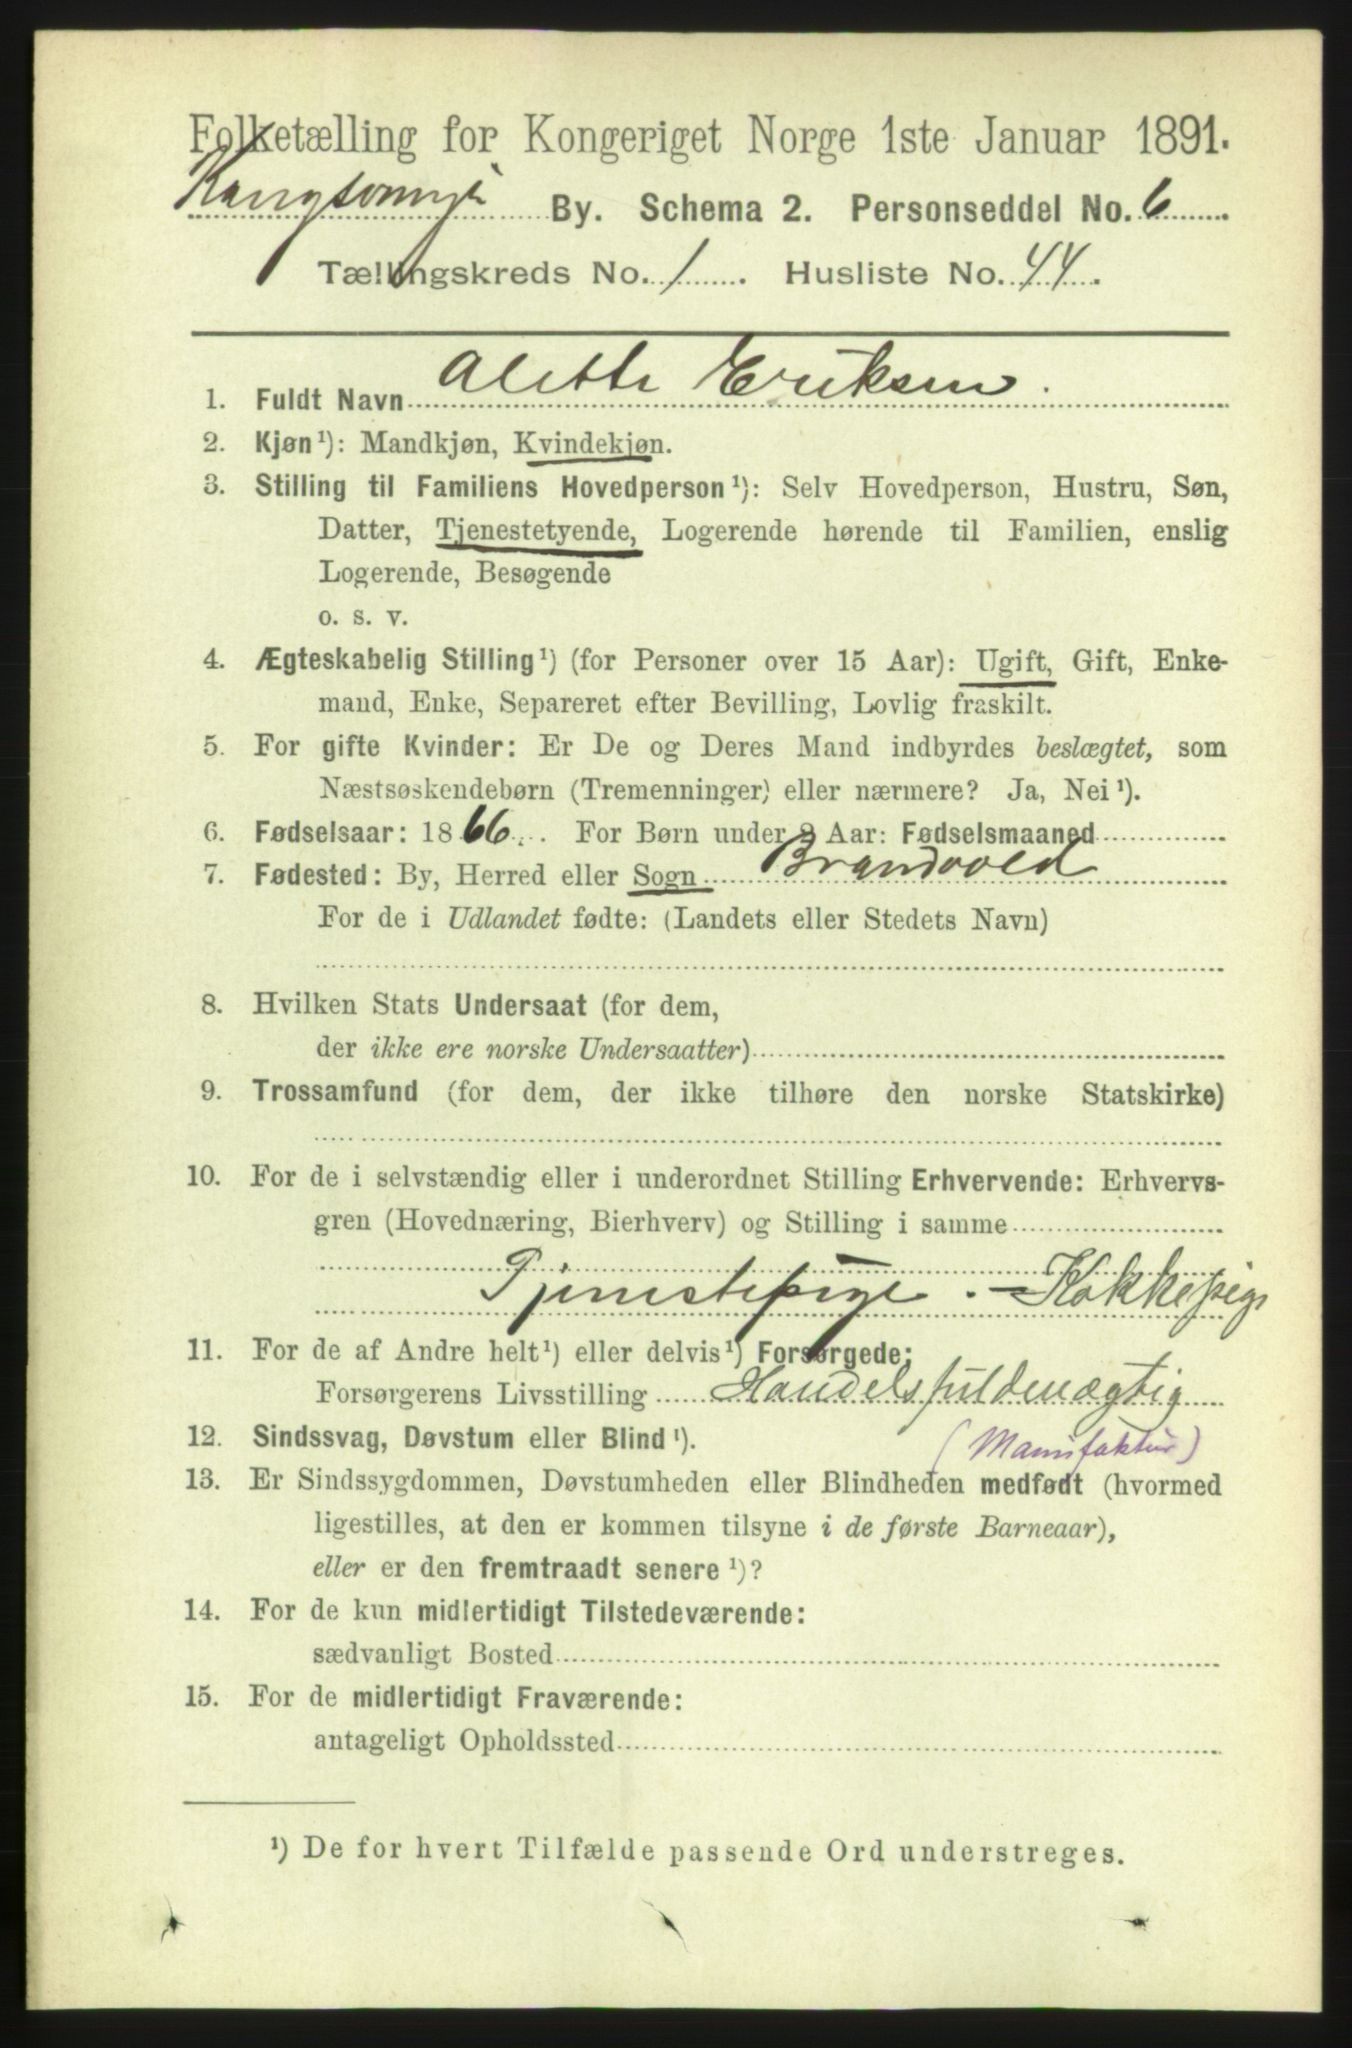 Folketælling for Kongeriget Norge 1ste Januar 1891.
By. Schema 2. Personseddel No. 6
Tællingskreds No. 1. Husliste No. 44.
1. Fuldt Navn Alette Eriksen.
2. Kjøn¹): Mandkjøn, Kvindekjøn.
3. Stilling til Familiens Hovedperson¹): Selv Hovedperson, Hustru, Søn,
Datter, Tjenestetyende, Logerende hørende til Familien, enslig
Logerende, Besøgende
o. s. v.
4. Ægteskabelig Stilling¹) (for Personer over 15 Aar): Ugift, Gift, Enke-
mand, Enke, Separeret efter Bevilling, Lovlig fraskilt.
5. For gifte Kvinder: Er De og Deres Mand indbyrdes beslægtet, som
Næstsøskendebørn (Tremenninger) eller nærmere? Ja, Nei¹).
6. Fødselsaar: 1866. For Børn under 2 Aar: Fødselsmaaned
7. Fødested: By, Herred eller Sogn Brandvold
For de i Udlandet fødte: (Landets eller Stedets Navn)
8. Hvilken Stats Undersaat (for dem,
der ikke ere norske Undersaatter)
9. Trossamfund (for dem, der ikke tilhøre den norske Statskirke)
10. For de i selvstændig eller i underordnet Stilling Erhvervende: Erhvervs-
gren (Hovednæring, Bierhverv) og Stilling i samme
Tjenestepige. - Kokkepige
11. For de af Andre helt¹) eller delvis¹) Forsørgede;
Forsørgerens Livsstilling Handelsfuldmægtig
(Manufaktur)
12. Sindssvag, Døvstum eller Blind¹).
13. Er Sindssygdommen, Døvstumheden eller Blindheden medfødt (hvormed
ligestilles, at den er kommen tilsyne i de første Barneaar),
eller er den fremtraadt senere¹)?
14. For de kun midlertidigt Tilstedeværende:
sædvanligt Bosted
15. For de midlertidigt Fraværende:
antageligt Opholdssted
¹) De for hvert Tilfælde passende Ord understreges.